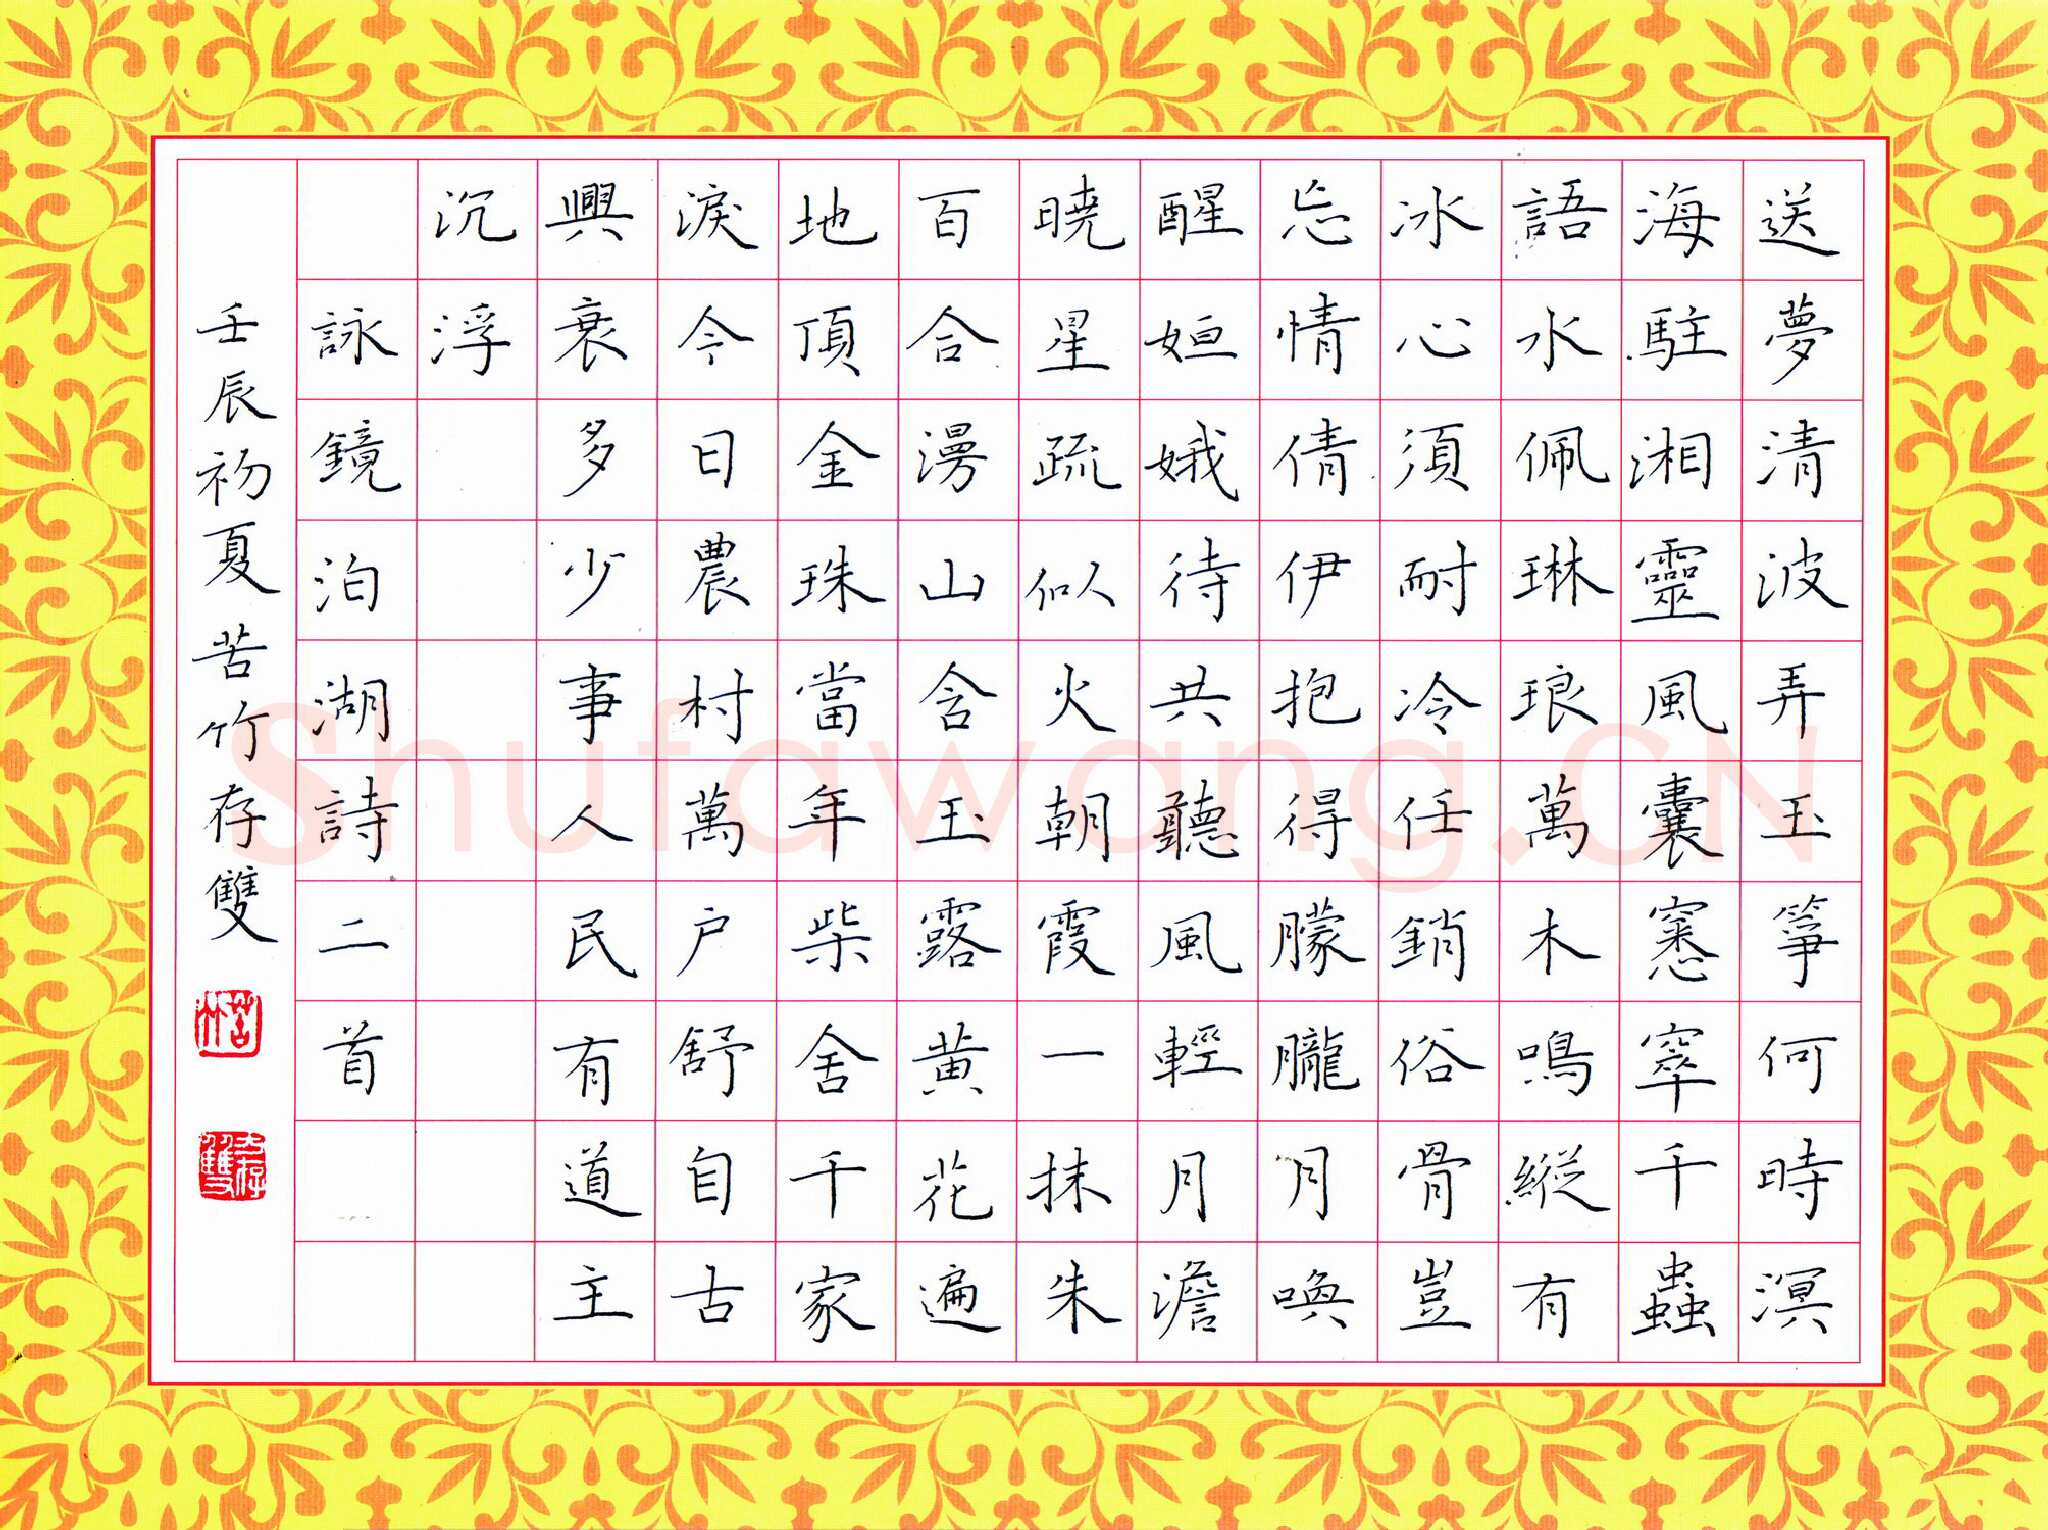 送夢清波弄玉箏何時溟
海駐湘靈風囊窸窣千蟲
語水佩琳琅萬木鳴縱有
冰心須耐冷任銷俗骨豈
忘情倩伊抱得朦朧月喚
醒姮娥待共聽風輕月澹
曉星疏似火朝霞一抹朱
百合漫山含玉露黄花遍
地頂金珠當年柴舍千家
淚今日農村萬户舒自古
興衰多少事人民有道主
沉浮
詠鏡泊湖詩二首
壬辰初夏苦竹存雙
Shufawang.CN